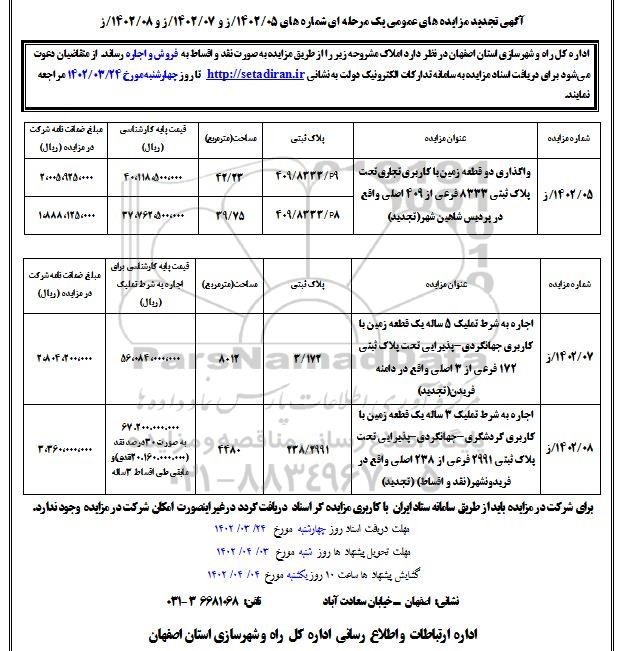 آگهی تجدید مزایده های عمومی یک مرحله ای شماره های ۱۴۰۲/۰۵/ز و ۱۴۰۲/۰۷/ز و ۱۴۰۲/۰۸/ز
اداره کل راه و شهرسازی استان اصفهان در نظر دارد املاک مشروحه زیر را از طریق مزایده به صورت نقد و اقساط به فروش و اجاره رساند. از متقاضیان دعوت
می‌شود برای دریافت اسناد مزایده به سامانه تدارکات الکترونیک دولت به نشانی http://setadiran.ir تا روز چهارشنبه مورخ ۱۴۰۲/۰۳/۲۴ مراجعه
نمایند.
شماره مزایده
عنوان مزایده
پلاک ثبتی
مساحت(مترمربع)
قیمت پایه کارشناسی
(ریال)
مبلغ ضمانت نامه شرکت
در مزایده (ریال)
۱۴۰۲/۰۵/ز
واگذاری دو قطعه زمین با کاربری تجاری تحت
پلاک ثبتی ۸۳۳۳ فرعی از ۴۰۹ اصلی واقع
در پردیس شاهین شهر(تجدید)
۴۰۹/۸۳۳۳/۶۹
۴۲/۲۳
۴۰،۱۱۸،۵۰۰،۰۰۰
۲،۰۰۵،۹۲۵،۰۰۰
۴۰۹/۸۳۳۳/۶۸
۳۹/۷۵
۳۷،۷۶۲،۵۰۰،۰۰۰
۱،۸۸۸،۱۲۵،۰۰۰
شماره مزایده
عنوان مزایده
پلاک ثبتی
مساحت(مترمربع)
قیمت پایه کارشناسی برای
اجاره به شرط تملیک
(ریال)
مبلغ ضمانت نامه شرکت
در مزایده (ریال)
۱۴۰۲/۰۷/ز
اجاره به شرط تملیک ۵ ساله یک قطعه زمین با
کاربری جهانگردی–پذیرایی تحت پلاک ثبتی
۱۷۲ فرعی از ۳ اصلی واقع در دامنه
فریدن(تجدید)
۳/۱۷۲
۸۰۱۲
۵۶،۰۸۴،۰۰۰،۰۰۰
۲،۸۰۴،۲۰۰،۰۰۰
۱۴۰۲/۰۸/ز
اجاره به شرط تملیک ۳ ساله یک قطعه زمین با
کاربری گردشگری –جهانگردی–پذیرایی تحت
پلاک ثبتی ۲۹۹۱ فرعی از ۲۳۸ اصلی واقع در
فریدونشهر(نقد و اقساط) (تجدید)
۲۳۸/۲۹۹۱
۴۴۸۰
۶۷،۲۰۰،۰۰۰،۰۰۰
به صورت ۳۰درصد نقد
(۲۰،۱۶۰،۰۰۰،۰۰۰نقدی)و
مابقی طی اقساط ۳ساله
۳،۳۶۰،۰۰۰،۰۰۰
برای شرکت در مزایده باید از طریق سامانه ستاد ایران با کاربری مزایده گر اسناد دریافت گردد درغیر اینصورت امکان شرکت در مزایده وجود ندارد.
مهلت دریافت اسناد روز چهارشنبه مورخ ۲۴/ ۰۳/ ۱۴۰۲
مهلت تحویل پیشنهاد ها روز شنبه مورخ ۰۳/ ۰۴/ ۱۴۰۲
گشایش پیشنهاد ها ساعت ۱۰ روز یکشنبه مورخ ۰۴/ ۰۴/ ۱۴۰۲
نشانی: اصفهان –خیابان سعادت آباد تلفن: ۳۶۶۸۱۰۶۸-۰۳۱
اداره ارتباطات و اطلاع رسانی اداره کل راه و شهرسازی استان اصفهان
ParsNamadData
۰۲۱-۸۸۳۴۹۶۷۰-۵